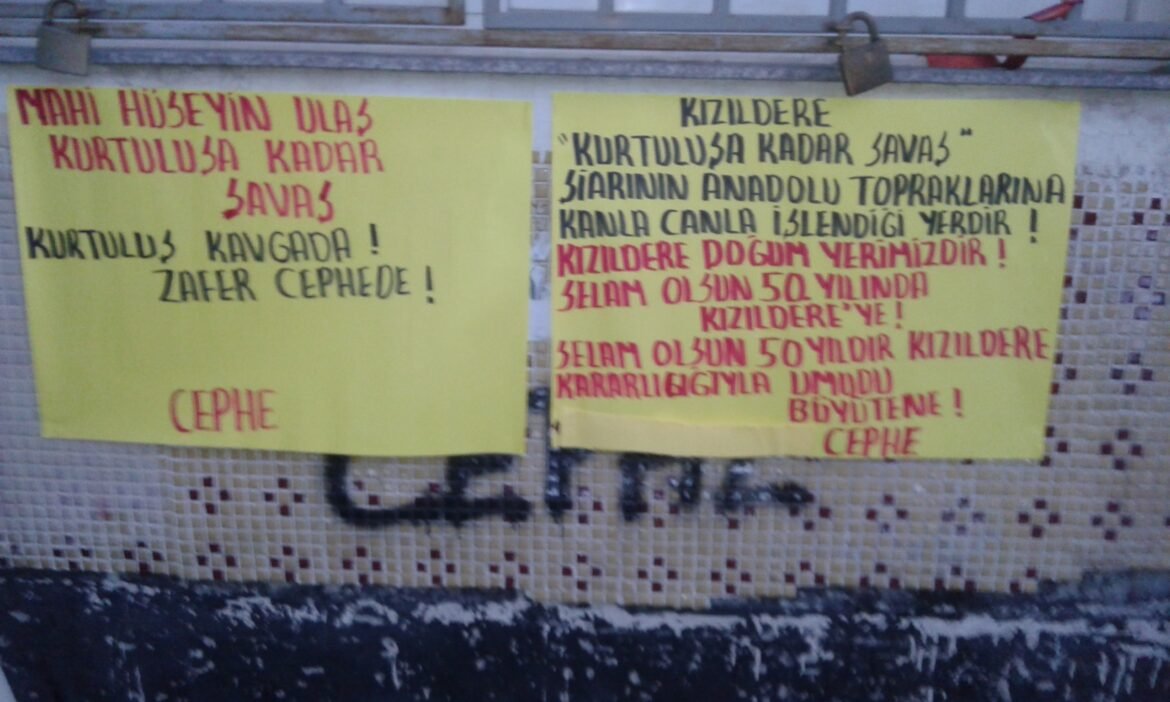 MAHİ HÜSEYİN ULAŞ
KURTULUŞA KADAR
SAVAŞ
KURTULUŞ KAVGADA !
ZAFER CEPHEDE !
CEPHE
KIZILDERE
"KURTULUŞA KADAR SAVAŞ"
ŞİARININ ANADOLU TOPRAKLARINA
KANLA CANLA İŞLENDİĞİ YERDİR !
KIZILDERE DOĞUM YERİMİZDİR !
SELAM OLSUN 50. YILINDA
KIZILDERE'YE !
SELAM OLSUN 50 YILDIR KIZILDERE
KARARLIGIĞIYLA UMUDU
BÜYÜTENE !
CEPHE
CEPHE